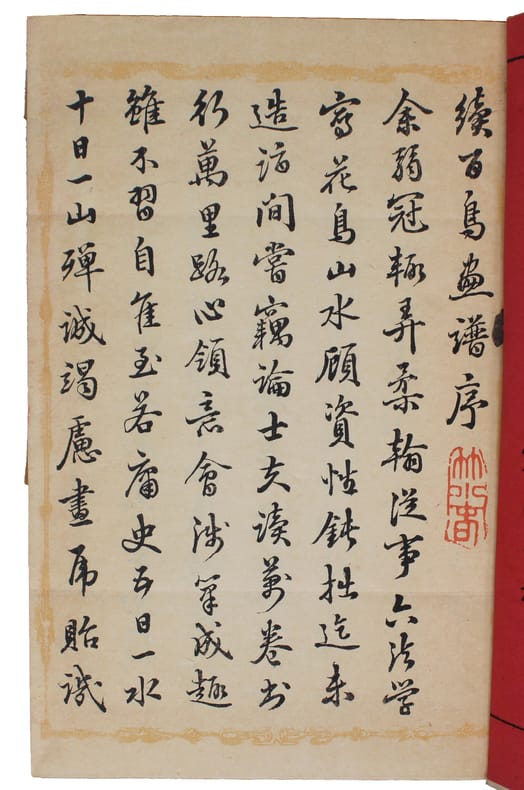 續百鳥畫譜序
余弱冠輒弄柔翰從事六法學
寫花鳥山水顧資性鈍拙迄未
造詣間嘗竊論士夫讀萬卷書
行萬里路心領意會涉筆成趣
雖不習自佳至若庸史五日一水
十日一山殫誠竭慮畫虎貽譏